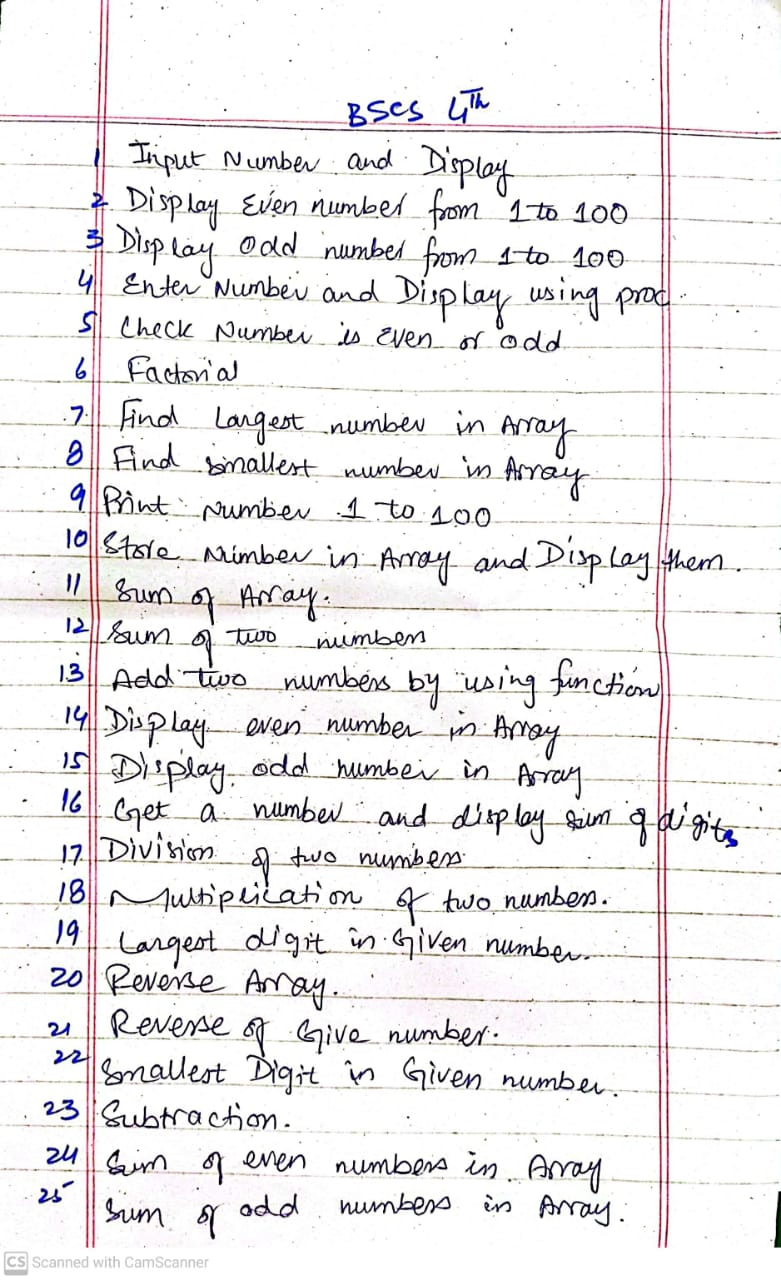 BSCS 4Th
1 Input Number and Display
2 Display Even number from 1 to 100
3 Display Odd number from 1 to 100
4 Enter Number and Display using proc.
5 Check Number is Even or odd
6 Factorial
7. Find Largest number in Array
8 Find smallest number in Array
9 Print Number 1 to 100
10 Store Number in Array and Display them.
11 Sum of Array.
12 Sum of two numbers
13 Add two numbers by using function
14 Display even number in Array
15 Display odd number in Array
16 Get a number and display sum of digits
17 Division of two numbers
18 Multiplication of two numbers.
19 Largest digit in Given number.
20 Reverse Array.
21 Reverse of Give number.
22 Smallest Digit in Given number.
23 Subtraction.
24 Sum of even numbers in Array
25 Sum of odd numbers in Array.
CS Scanned with CamScanner